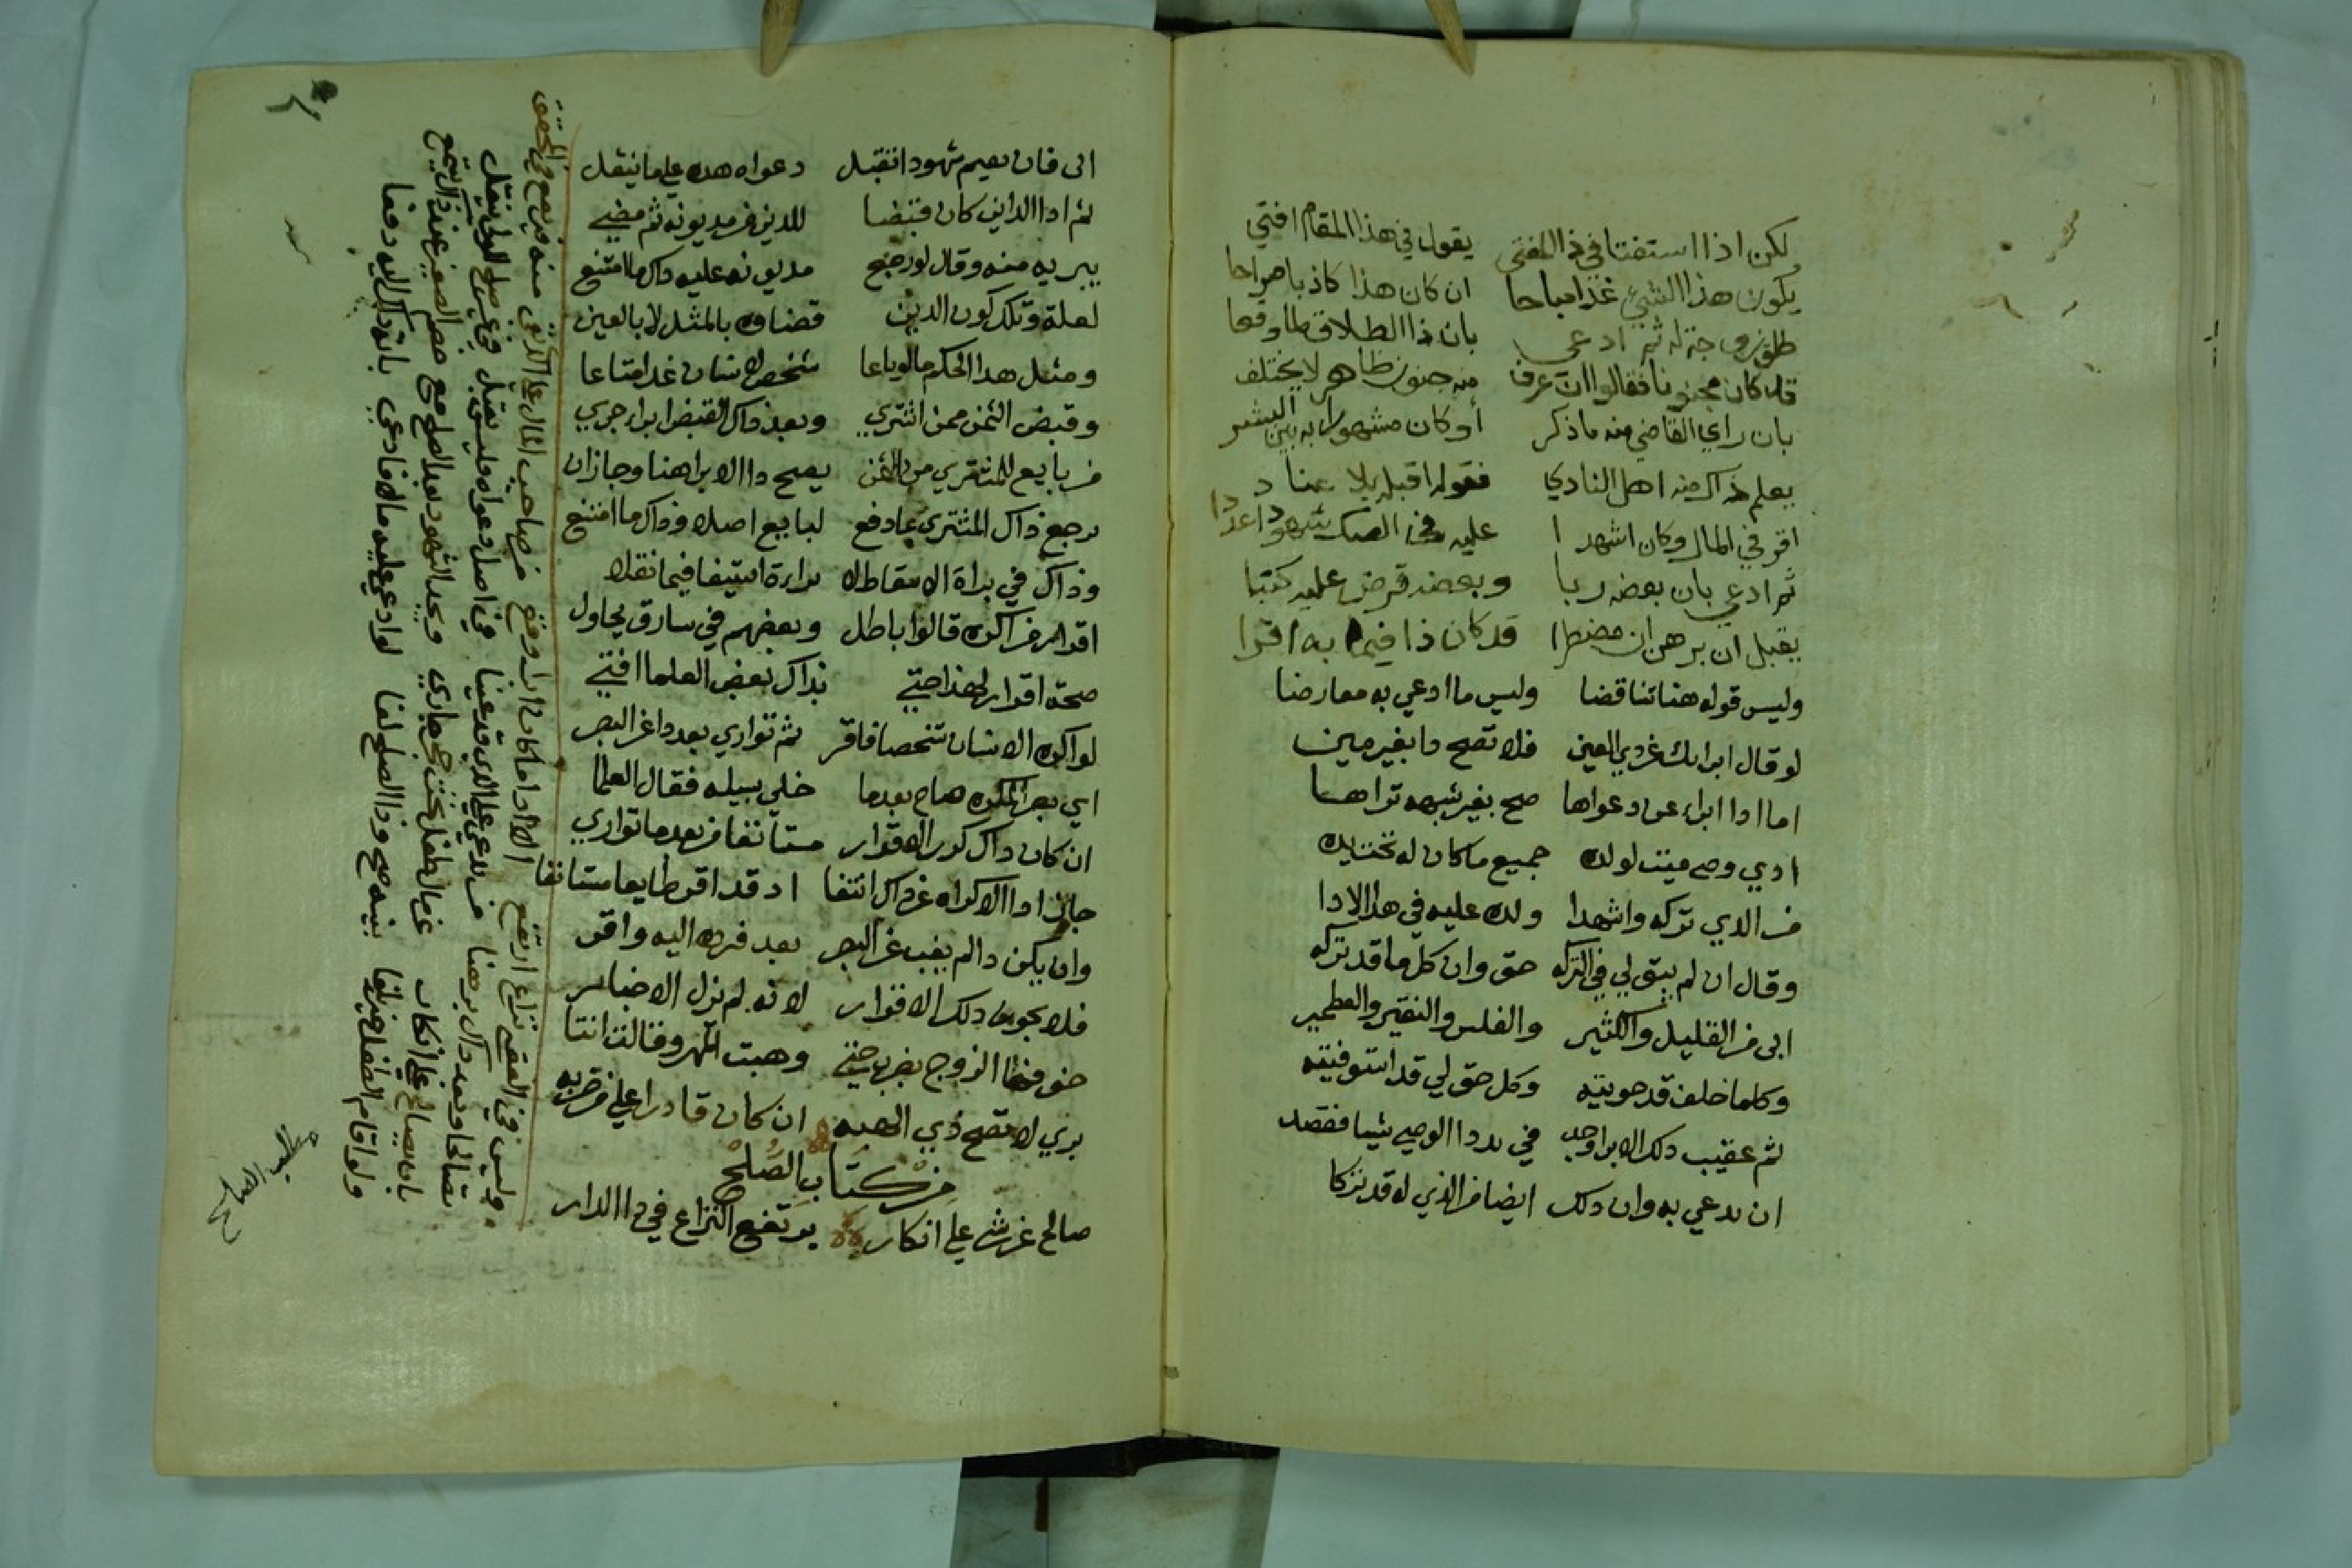 لكن اذا استفتا في ذا المفتي يقول في هذا المقام افتي
يكون هذا الشيء غدا مباحا ان كان هذا كاذبا صراحا
طلق زوجة له ثم ادعي بان ذا الطلاق لما وقعا
قد كان مجنونا فقالوا ان عرف منه جنون ظاهر لا يختلف
بان راي القاضي منه ما ذكر أو كان مشهورا به بين البشر
يعلم ذاك منه اهل النادي فقوله اقبله بلا عناد
اقر في المال وكان اشهدا عليه في الصك شهودا عددا
ثم ادعي بان بعضه ربا وبعضه قرض عليه كتبا
يقبل ان برهن ان مضطرا قد كان ذا فيما به اقرا
وليس قوله هنا تناقضا وليس ما ادعي به معارضا
لو قال ابراتك عن ذي العين فلا تصح ذا بغير مين
اما اذا ابراء عن دعواها صح بغير شبهه تراها
ادي وصي ميت لولده جميع ما كان له تحت يده
من الذي تركه واشهدا ولده عليه في هذا الادا
وقال ان لم يبق لي في التركه حق وان كل ما قد تركه
ابي من القليل والكثير والفلس والنقير والقطمير
وكلما خلف قد حويته وكل حق لي قد استوفيته
ثم عقيب ذلك الابرا وجد في يد ذا الوصي شيئا فقصد
ان يدعي به وان ذلك ايضا من الذي له قد تركا
ابي فان يقيم شهودا تقبل دعواه هذه علي ما ينقل
ثم اذا الداين كان قبضا للدين من مديونه ثم مضي
يبريه منه وقال لو رجع مديونه عليه ذاك ما امتنع
لعلة وتلك كون الدين قضاوه بالمثل لا بالعين
ومثل هذا الحكم ما لو باعا شخص لانسان غدا متاعا
وقبض الثمن ممن اشتري وبعد ذاك القبض ابرا جري
من بايع للمشتري من الثمن يصح ذا الابرا هنا وجاز ان
يرجع ذاك المشتري بما دفع لبايع اصلا وذاك ما امتنع
وذاك في براة الاسقاط لا براءة استيفا فيما نقلا
اقرار من اكره قالوا باطل وبعضهم في سارق يحاول
صحة اقرار لهذا حتي بذاك بعض العلما افتي
لو اكره الانسان شخصا فاقر ثم تواري بعد ذا عن البصر
اي بصر المكره هذا بعدما خلي سبيله فقال العلما
ان كان ذاك كون الاقرار مستانفا من بعد ما تواري
جاز اذا الاكراه عن ذاك انتفا اذ قد اقر طايعا مستانفا
وان يكن ذا لم يغب عن البصر بعد فرده اليه واقر
فلا يجوز ذلك الاقرار لانه لم يزل الاضبار
خوفها الزوج بضرب حتي وهبت المهر وقالت انتا
بري لا تصح ذي الهبه ان كان قادرا علي من ضربه
من كتاب الصلح
صالح عن شي علي انكار يرتفع النزاع في ذا الدار
وليس في العقبي نزاع ارتفع الا اذا ما كان ابرا وقع من صاحب المال علي الذي بقي منه فيرتفع في المحقق
تصالحا وبعد ذاك برهنا من يدعي علي الذي قد عينا في اصل دعواه فليس يقبل في غير صلح الولي ينقل
بان يصالح علي انكار عن مال طفل تحت حجر جاري ويجد الشهود بعد الصلح مع خصم الصغير عند ذاك يتبع
ولو اقام الطفل حين بلغا بينه صح وذا الصلح لغا لو ادعي عليه مالا فادعي بانه ذاك اليه دفعا
مطلب الصلح